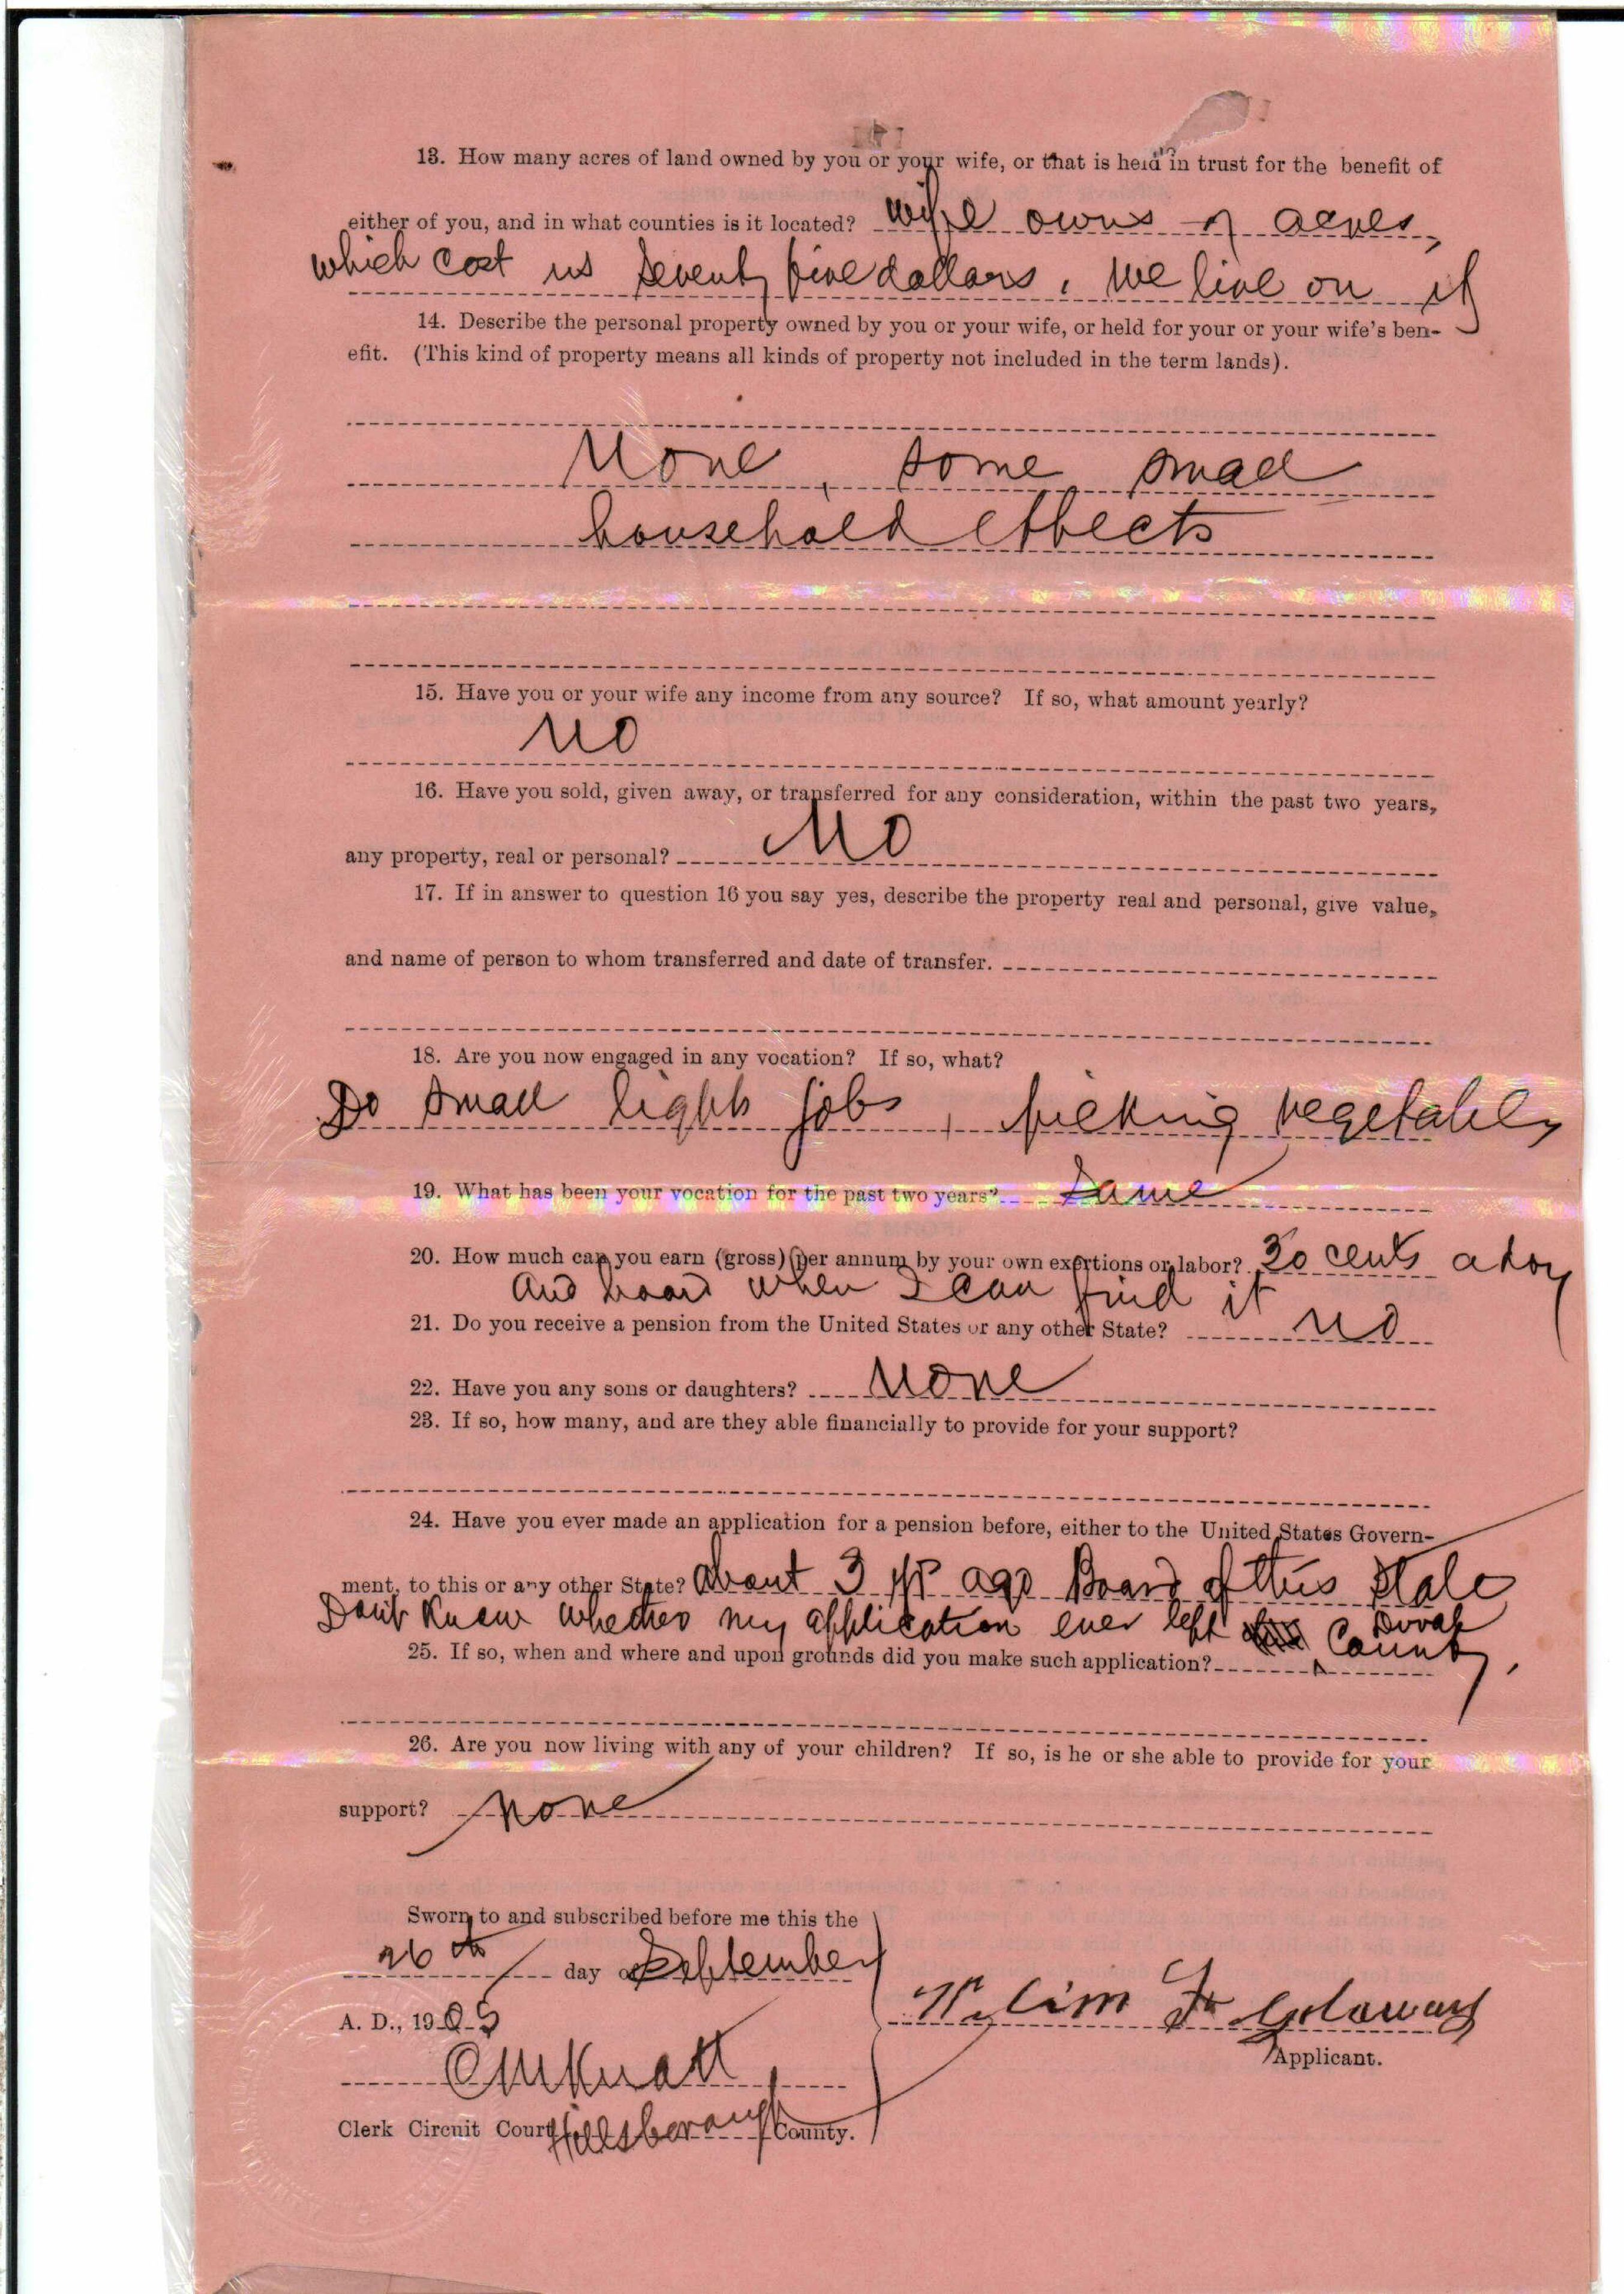 13. How many acres of land owned by you or your wife, or that is held in trust for the benefit of
either of you, and in what counties is it located? wife owns acres,
which cost us seventy five dollars, we live on it
14. Describe the personal property owned by you or your wife, or held for your or your wife's ben-
efit. (This kind of property means all kinds of property not included in the term lands).
None, some small
household effects
15. Have you or your wife any income from any source? If so, what amount yearly?
No
16. Have you sold, given away, or transferred for any consideration, within the past two years,
any property, real or personal? No
17. If in answer to question 16 you say yes, describe the property real and personal, give value,
and name of person to whom transferred and date of transfer.
18. Are you now engaged in any vocation? If so, what?
Do small light jobs, picking vegetables
19. What has been your vocation for the past two years? Same
20. How much can you earn (gross) per annum by your own exertions or labor? 30 cents a day
and board when I can find it
21. Do you receive a pension from the United States or any other State? No
22. Have you any sons or daughters? None
23. If so, how many, and are they able financially to provide for your support?
24. Have you ever made an application for a pension before, either to the United States Govern-
ment, to this or any other State? About 3 yrs ago Board of this State
Don't know whether my application ever left Duval County,
25. If so, when and where and upon grounds did you make such application?
26. Are you now living with any of your children? If so, is he or she able to provide for your
support? none
Sworn to and subscribed before me this the
26th day of September
A. D., 1905
Applicant.
Clerk Circuit Court Hillsborough County.